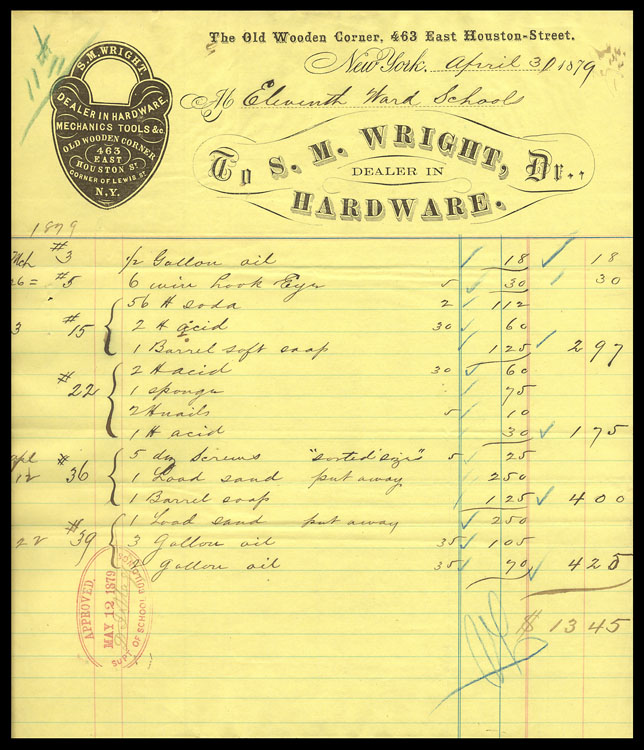 The Old Wooden Corner, 463 East Houston-Street.
New York, April 30 1879
M Eleventh Ward School
To S. M. WRIGHT, Dr.,
DEALER IN
HARDWARE.
S. M. WRIGHT
DEALER IN HARDWARE
MECHANICS TOOLS &c.
OLD WOODEN CORNER
463
EAST
HOUSTON ST.
CORNER OF LEWIS ST.
N.Y.
1879
Mch #3 1/2 Gallon oil 18 18
26 = #5 6 wire hook Eyes 5 30 30
56 # soda 2 112
#15 2 # acid 30 60
1 Barrel soft soap 125 297
#22 2 # acid 30 60
1 sponge 75
2 # nails 5 10
1 # acid 30 175
5 dz Screws "sorted size" 5 25
12 #36 1 Load sand put away 250
1 Barrel soap 125 400
1 Load sand put away 250
22 #39 3 Gallon oil 35 105
2 gallon oil 35 70 425
$ 1345
APPROVED
MAY 12 1879
SUPT OF SCHOOL